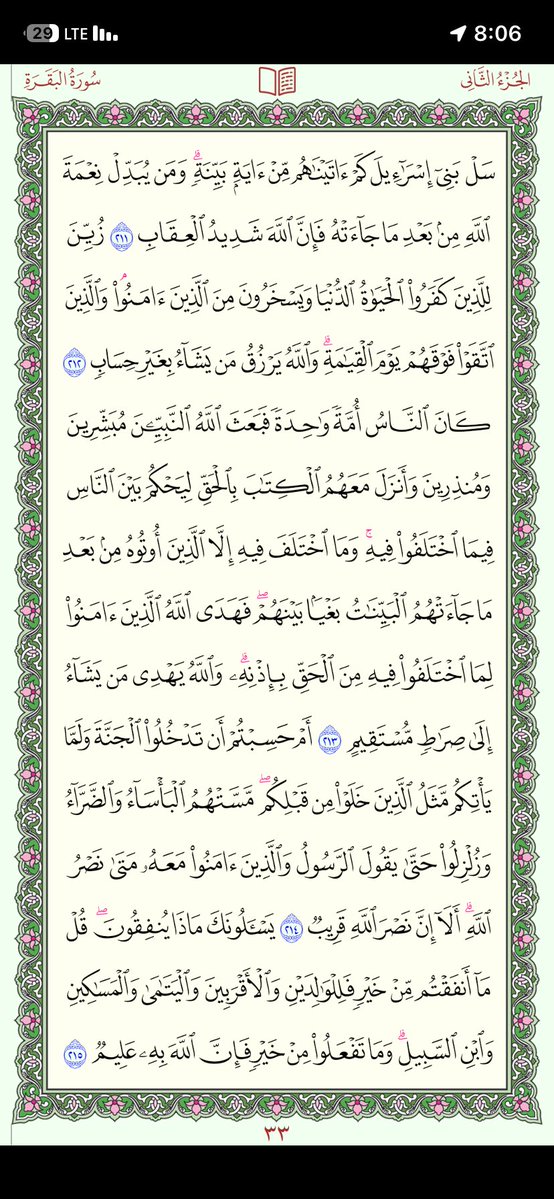 29 LTE 8:06
الجُزْءُ الثَّانِي سُورَةُ البَقَرَةِ
سَلْ بَنِىٓ إِسْرَٰٓءِيلَ كَمْ ءَاتَيْنَٰهُم مِّنْ ءَايَةٍۭ بَيِّنَةٍۗ وَمَن يُبَدِّلْ نِعْمَةَ
ٱللَّهِ مِنۢ بَعْدِ مَا جَآءَتْهُ فَإِنَّ ٱللَّهَ شَدِيدُ ٱلْعِقَابِ ٢١١ زُيِّنَ
لِلَّذِينَ كَفَرُوا۟ ٱلْحَيَوٰةُ ٱلدُّنْيَا وَيَسْخَرُونَ مِنَ ٱلَّذِينَ ءَامَنُوا۟ۘ وَٱلَّذِينَ
ٱتَّقَوْا۟ فَوْقَهُمْ يَوْمَ ٱلْقِيَٰمَةِۗ وَٱللَّهُ يَرْزُقُ مَن يَشَآءُ بِغَيْرِ حِسَابٍ ٢١٢
كَانَ ٱلنَّاسُ أُمَّةً وَٰحِدَةً فَبَعَثَ ٱللَّهُ ٱلنَّبِيِّـۧنَ مُبَشِّرِينَ
وَمُنذِرِينَ وَأَنزَلَ مَعَهُمُ ٱلْكِتَٰبَ بِٱلْحَقِّ لِيَحْكُمَ بَيْنَ ٱلنَّاسِ
فِيمَا ٱخْتَلَفُوا۟ فِيهِۚ وَمَا ٱخْتَلَفَ فِيهِ إِلَّا ٱلَّذِينَ أُوتُوهُ مِنۢ بَعْدِ
مَا جَآءَتْهُمُ ٱلْبَيِّنَٰتُ بَغْيًۢا بَيْنَهُمْۖ فَهَدَى ٱللَّهُ ٱلَّذِينَ ءَامَنُوا۟
لِمَا ٱخْتَلَفُوا۟ فِيهِ مِنَ ٱلْحَقِّ بِإِذْنِهِۦۗ وَٱللَّهُ يَهْدِى مَن يَشَآءُ
إِلَىٰ صِرَٰطٍ مُّسْتَقِيمٍ ٢١٣ أَمْ حَسِبْتُمْ أَن تَدْخُلُوا۟ ٱلْجَنَّةَ وَلَمَّا
يَأْتِكُم مَّثَلُ ٱلَّذِينَ خَلَوْا۟ مِن قَبْلِكُمۖ مَّسَّتْهُمُ ٱلْبَأْسَآءُ وَٱلضَّرَّآءُ
وَزُلْزِلُوا۟ حَتَّىٰ يَقُولَ ٱلرَّسُولُ وَٱلَّذِينَ ءَامَنُوا۟ مَعَهُۥ مَتَىٰ نَصْرُ
ٱللَّهِۗ أَلَآ إِنَّ نَصْرَ ٱللَّهِ قَرِيبٌ ٢١٤ يَسْـَٔلُونَكَ مَاذَا يُنفِقُونَۖ قُلْ
مَآ أَنفَقْتُم مِّنْ خَيْرٍ فَلِلْوَٰلِدَيْنِ وَٱلْأَقْرَبِينَ وَٱلْيَتَٰمَىٰ وَٱلْمَسَٰكِينِ
وَٱبْنِ ٱلسَّبِيلِۗ وَمَا تَفْعَلُوا۟ مِنْ خَيْرٍ فَإِنَّ ٱللَّهَ بِهِۦ عَلِيمٌ ٢١٥
٣٣